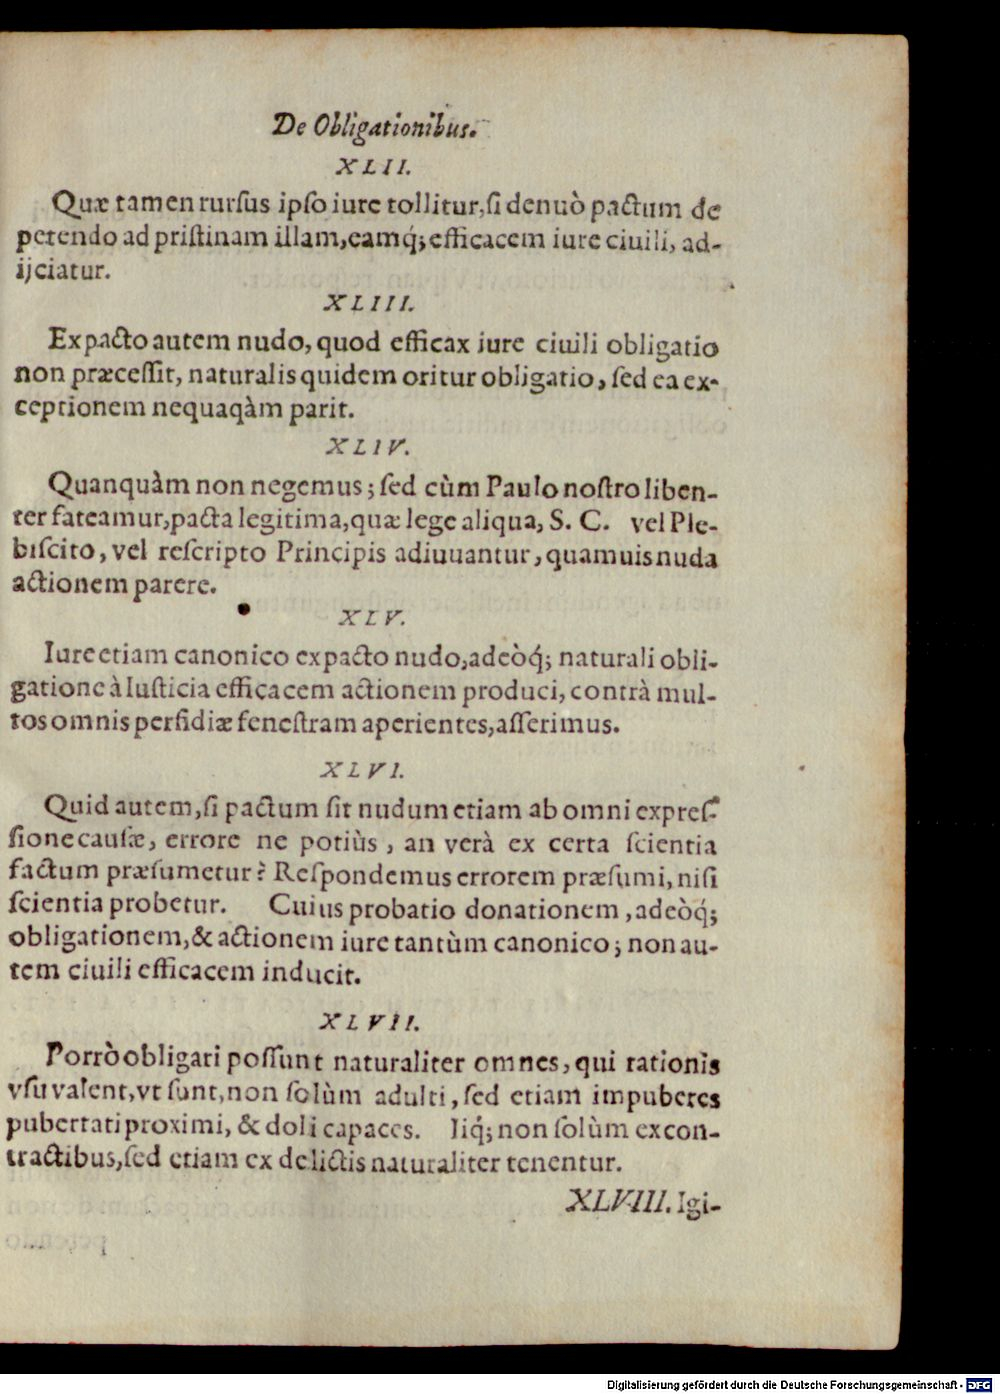 De Obligationibus.
XLII.
Quæ tamen rurſus ipſo iure tollitur, ſi denuò pactum de
petendo ad priſtinam illam, eamq́; efficacem iure ciuili, ad-
ijciatur.
XLIII.
Ex pacto autem nudo, quod efficax iure ciuili obligatio
non præceſſit, naturalis quidem oritur obligatio, ſed ea ex-
ceptionem nequaqàm parit.
XLIV.
Quanquàm non negemus; ſed cùm Paulo noſtro liben-
ter fateamur, pacta legitima, quæ lege aliqua, S. C. vel Ple-
biſcito, vel reſcripto Principis adiuuantur, quamuis nuda
actionem parere.
XLV.
Iure etiam canonico ex pacto nudo, adeòq́; naturali obli-
gatione à Iuſticia efficacem actionem produci, contrà mul-
tos omnis perfidiæ feneſtram aperientes, aſſerimus.
XLVI.
Quid autem, ſi pactum ſit nudum etiam ab omni expreſ-
ſione cauſæ, errore ne potiùs, an verà ex certa ſcientia
factum præſumetur? Reſpondemus errorem præſumi, niſi
ſcientia probetur. Cuius probatio donationem, adeòq́;
obligationem, & actionem iure tantùm canonico; non au-
tem ciuili efficacem inducit.
XLVII.
Porrò obligari poſſunt naturaliter omnes, qui rationis
vſu valent, vt ſunt, non ſolùm adulti, ſed etiam impuberes
pubertati proximi, & doli capaces. Iiq́; non ſolùm ex con-
tractibus, ſed etiam ex delictis naturaliter tenentur.
XLVIII. Igi-
Digitalisierung gefördert durch die Deutsche Forschungsgemeinschaft - DFG